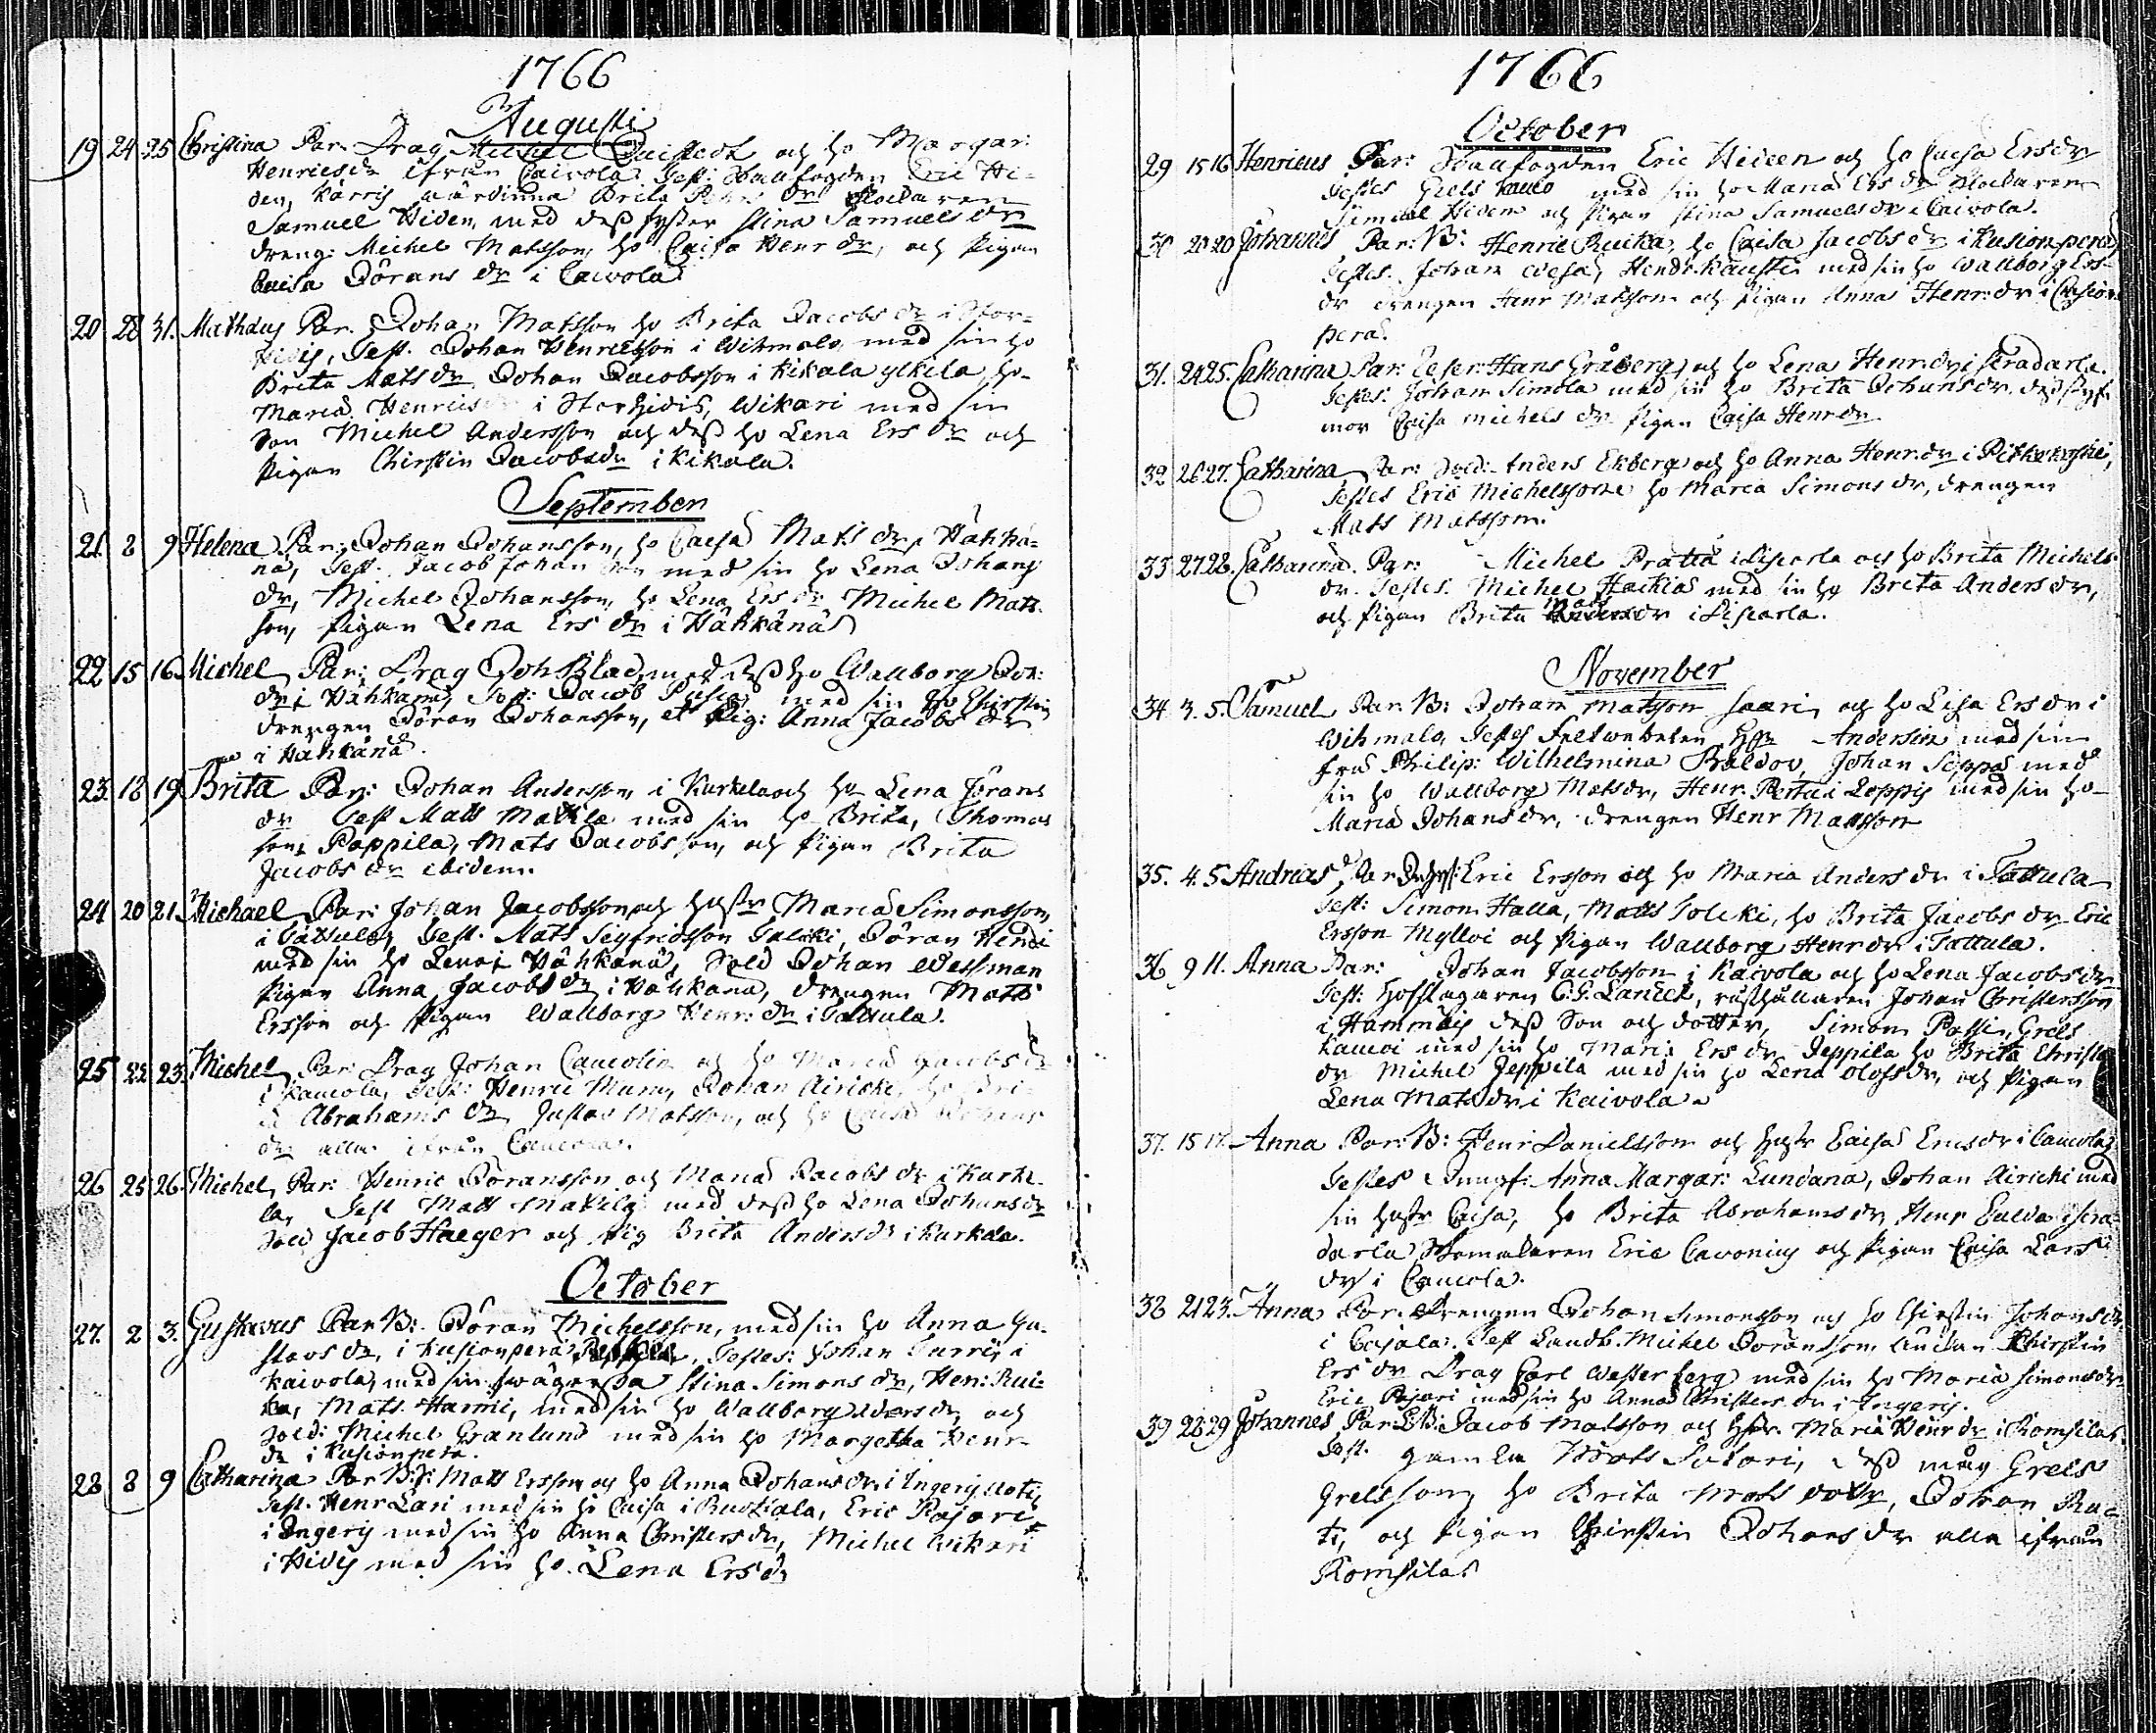 1766
Augusti
19 24 25 Christina Par. Drag Michel och ho Margar:
Henricsdr ifrån Caivola. Test: Eric Hi-
den, Brita dr Klockaren
Samuel Hiden, med dess syster Stina Samuels dr
dreng: Michel Matsson, ho Caisa Henr dr, och Pigan
Caisa Jörans dr i Caivola
20 28 31. Mathæus Par. Johan Matsson ho Brita Jacobs dr i Stor-
hidis, Test. Johan Henricsson i Wihmalo med sin ho
Brita Mats dr, Johan Jacobsson i Kikala ylkila ho
Maria Henrics i Storhidis, Wikari med sin
Son Michel Andersson och dess ho Lena Ers dr och
Pigan Chirstin Jacobsdr i Kikala.
September
21 8 9 Helena Par: Johan Johansson, ho Caisa Mats dr, Hähkä-
nä, Test. Jacob Johan son med sin ho Lena Johans
dr, Michel Johansson, ho Lena Ers dr Michel Mats
son, Pigan Lena Ers dr i Hähkänä
22 15 16 Michel Par: Drag Joh Blad med dess ho Wallborg Joh:
dr i Hähkänä, Test: Jacob med sin ho Chirstin
drengen Jöran Johansson, et Pig: Anna Jacobs dr
i Hähkänä.
23 18 19 Brita Par: Johan Andersson i Kurkela och ho Lena Jörans
dr Test Matts Mattila med sin ho Brita, Thomas
son Pappila, Mats Jacobsson, och Pigan Brita
Jacobs dr ibidem.
24 20 21 Michael Par: Johan Jacobsson och hustr Maria Simonsson
i Tattula, Test. Mats Sigfredsson Talcki, Jöran Hendi
med sin ho Lena i Hähkänä, Sold Johan Wessman
Pigan Anna Jacobs dr i Hähkänä, drengen Matts
Ersson och Pigan Wallborg Henr: dr i Tattula.
25 22 23 Michel Par: Drag Johan Caucolin och ho Maria Jacobs dr
i Kaucola, Test: Henric Mum, Johan Airicki, ho Bri-
ta Abrahams dr, Justav Matsson, och ho Caisa Johans
dr alla ifrån Caucola.
26 25 26 Michel Par: Henric Jöransson och Maria Jacobs dr i Kurke-
la, Test Matts Mattila med dess ho Lena Johansdr
Sold Jacob Haeger och Pig Brita Andersdr i Kurkela.
October
27. 2 3. Gustavus Par B: Jöran Michelsson, med sin ho Anna Gu-
stavs dr, i Kusionperä. Testes: Johan Turri i
Kaivola, med sin swägerska Stina Simons dr, Hen: Rui-
ka, Mats Harmi, med sin ho Wallborg Anders dr, och
Sold: Michel Granlund med sin ho Margetha Henr
dr i Kusionperä.
28 8 9 Catharina Par B: Matts Ersson og ho Anna Johansdr i Ingeris
Test. Henr Lari med sin ho Caisa i Ruskiala, Eric Pajari
i Ingeris med sin ho Anna Christersdr, Michel Wikari
i Hidis med sin ho. Lena Ersdr
1766
October
29 15 16 Henricus Par: Eric Hideen och ho Caisa Ersdr
Testes Grels Kauko med sin ho Maria Ers dr Klockaren
Samuel Hiden och Pigan Stina Samuels dr i Caivola.
30 20 20 Johannes Par: B: Henric Ruika, ho Caisa Jacobs dr i Kusionperä
Testes. Johan Wesa, Hendr. Kausti med sin ho Wallborg Ers-
dr drengen Henr Matsson och Pigan Anna Henr: dr i Cusion-
perä.
31. 24 25. Catharina Par: Hans Gråberg och ho Lena Henr: dr i Skradarla.
Testes: Johan Simola med sin ho Brita Johans dr. dess styf-
mor Caisa Michels dr Pigan Caisa Henr dr
32 26 27. Catharina Par: Sold: Anders Ekberg och ho Anna Henr: dr i Pitkekoski,
Testes Eric Michelsson ho Maria Simons dr, drengen
Mats Matsson.
33 27 28. Catharina. Par: Michel Prattia i Liscarla och ho Brita Michels
dr. Testes. Michel Hackia med sin ho Brita Anders dr,
och Pigan Brita Mats dr i Liscarla.
November
34 3. 5. Samuel Par. B: Johan Matsson Saari och ho Lisa Ers dr i
Wihmalo, Testes Feltwebelen Hr Andersin med sin
fru Philip: Wilhelmina Paldov, Johan Seppä med
sin ho Wallborg Matsdr, Henr. Pertu i Loppis med sin ho
Maria Johansdr, drengen Henr Matsson
35. 4. 5. Andreas Par Eric Ersson och ho Maria Anders dr i Tattula
Test: Simon Halla, Matts Tolcki, ho Brita Jacobs dr Eric
Ersson Mylloi och Pigan Wallborg Henr dr i Tattula.
36 9 11. Anna Par: Johan Jacobsson i Kaivola och ho Lena Jacobs dr
Test: Hofslagaren C. G. Laneck, rusthållaren Johan Christersson
i Hammäis dess Son och dotter, Simon Passi, Grels
Kaucoi med sin ho Maria Ers dr Jeppila ho Brita Christers
dr Michel Jeppila med sin ho Lena Olofs dr, och Pigan
Lena Mats dr i Kaivola.
37. 15 17. Anna Par: B: Henr Danielsson och hustr Caisa Ericsdr i Caucola,
Testes Jungf: Anna Margar: Lundana, Johan Airicki med
sin hustr Caisa, ho Brita Abrahams dr, Henr i Skra-
darla, Eric Cavonius och Pigan Caisa Lars
dr i Caucola.
38 21 23. Anna Par. Drengen Johan Simonsson och ho Chirstin Johansdr
i Cajala. Test Landb. Michel Jöransson, änkan Chirstin
Ers dr Drag Carl Westerberg med sin ho Maria Simonsdr
Eric Pajari med sin ho Anna Christers dr i Ingeris.
39 28 29 Johannes Par: LB: Jacob Matsson och hustr. Maria Henr dr i Romsila.
Test. gamla Mats Sutari, dess måg Grels
Grelsson, ho Brita Mats dotr, Johan Ra-
ti, och Pigan Chirstin Johans dr alla ifrån
Romsila.